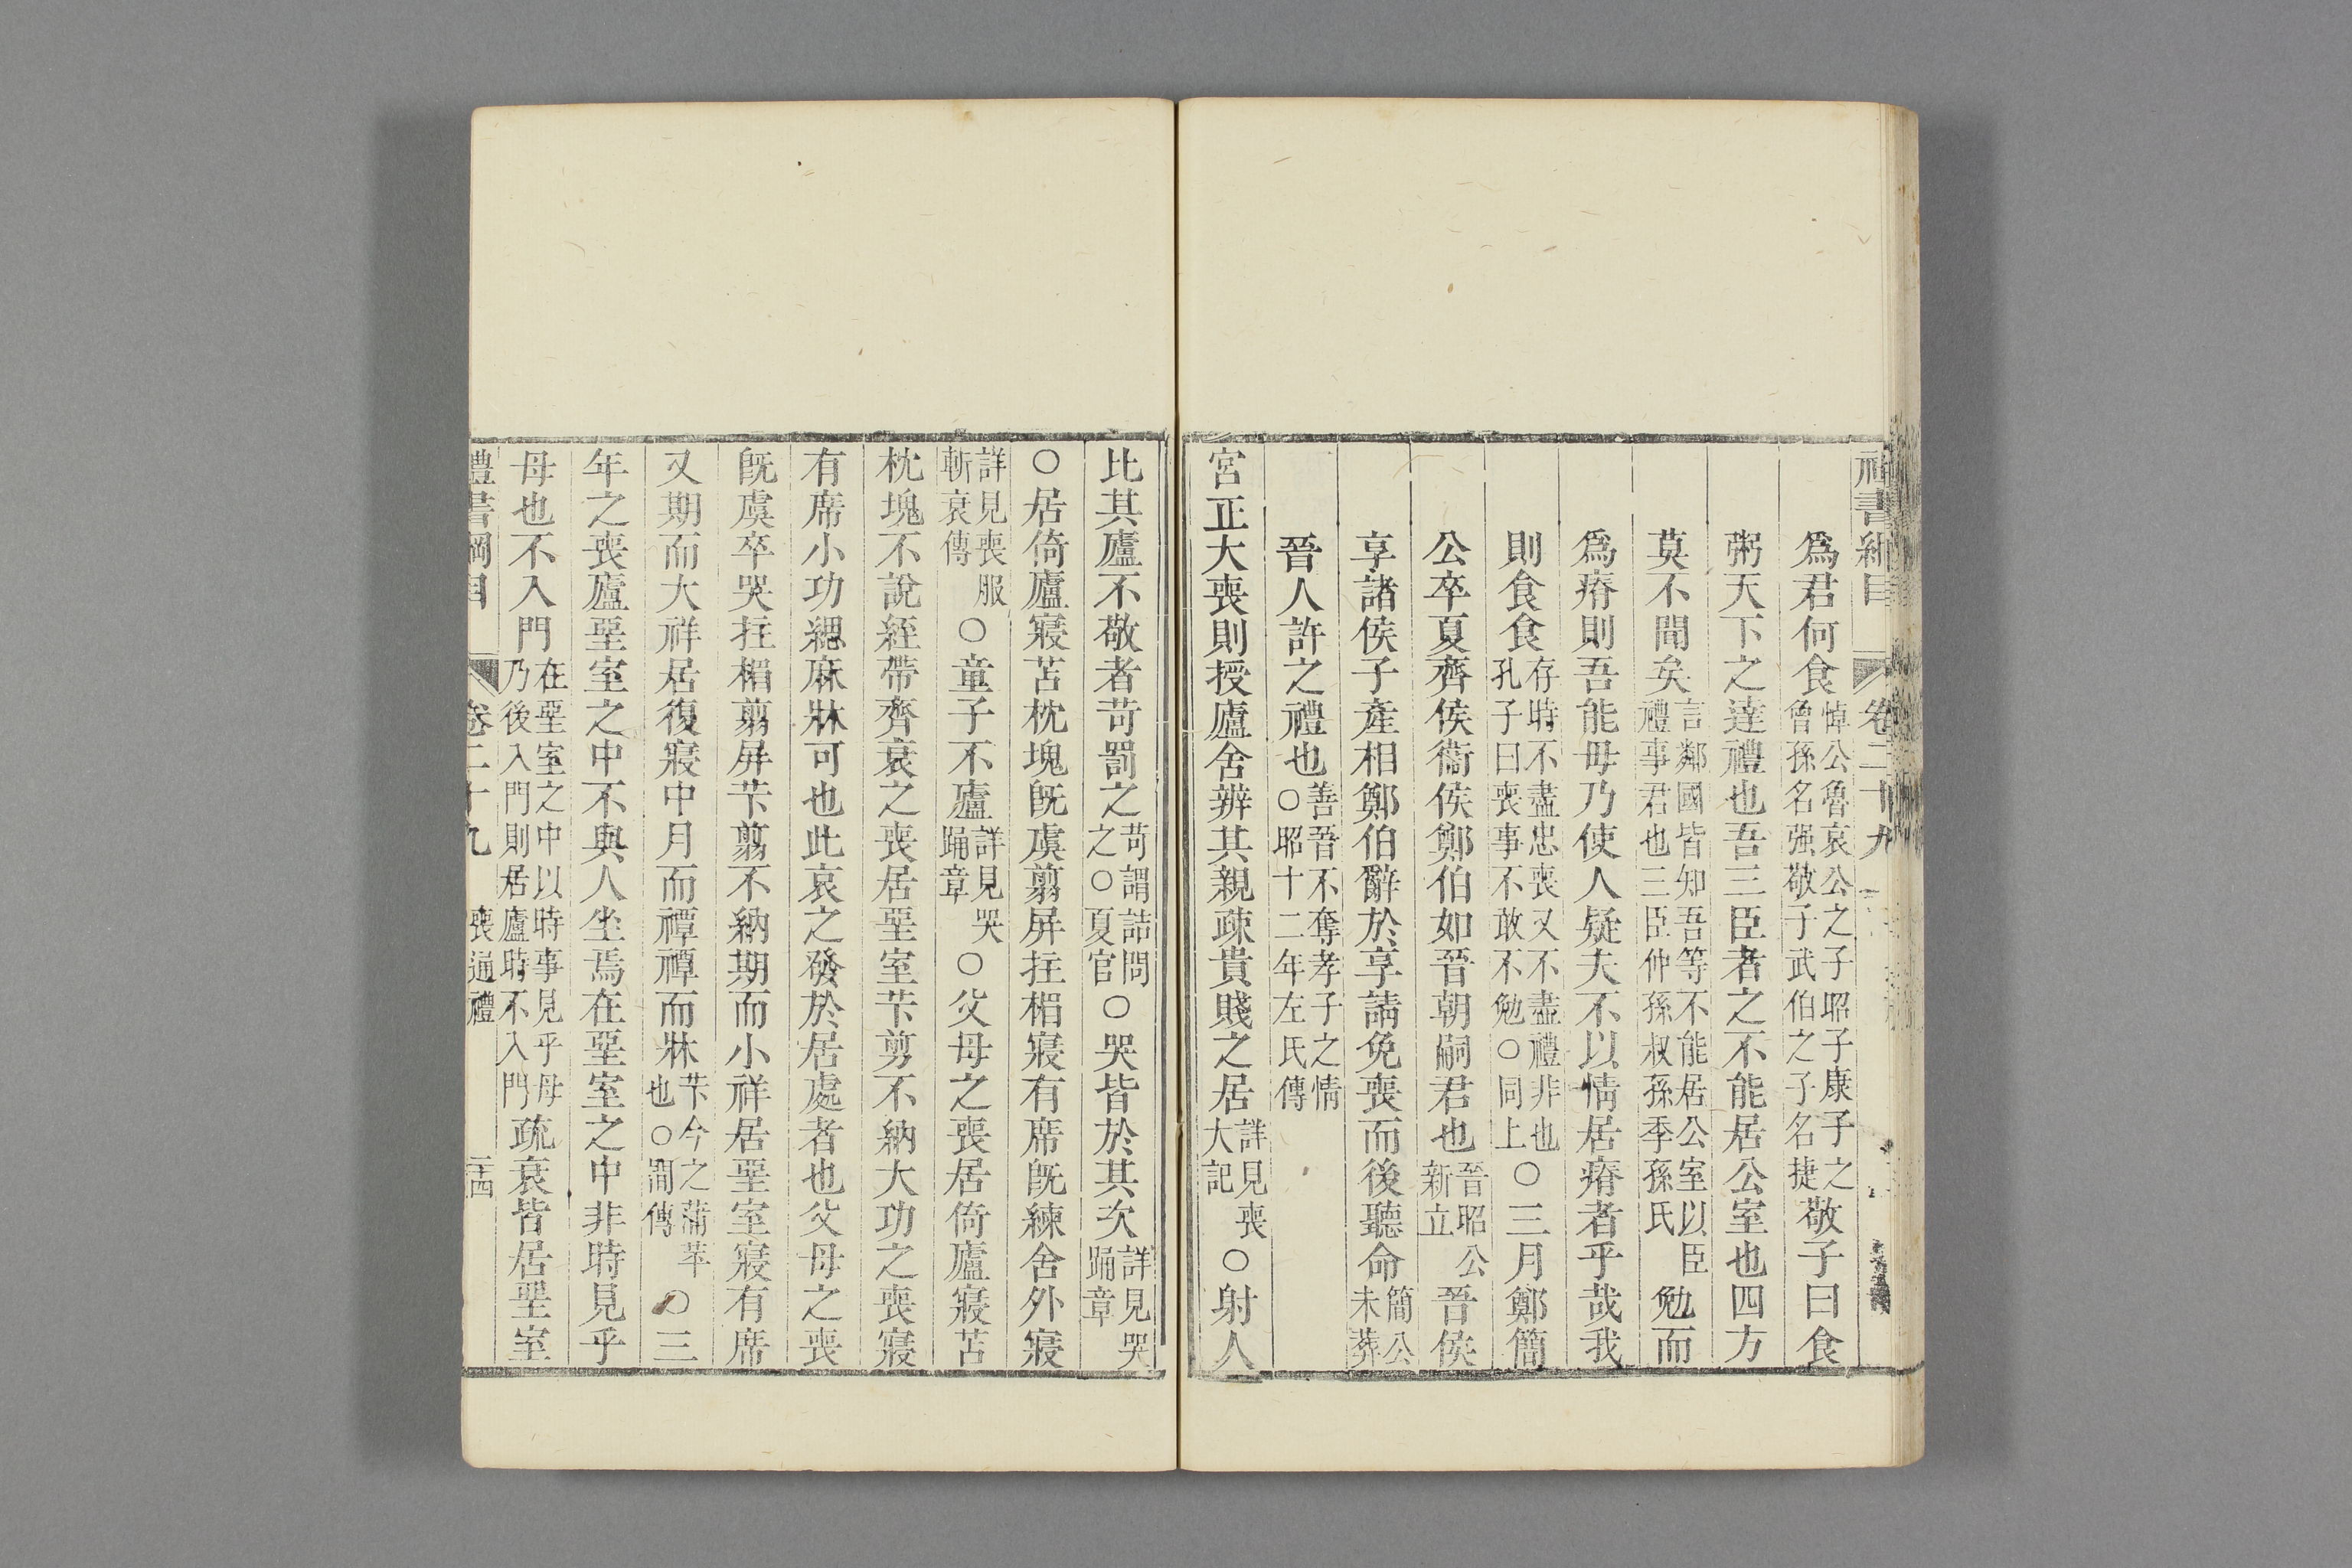 禮書綱目 卷二十九
爲君何食悼公魯哀公之子昭子康子之曾孫名强敬子武伯之子名捷敬子曰食
粥天下之達禮也吾三臣者之不能居公室也四方
莫不聞矣言鄰國皆知吾等不能居公室以臣禮事君也三臣仲孫叔孫季孫氏勉而
爲瘠則吾能毋乃使人疑夫不以情居瘠者乎哉我
則食食存時不盡忠喪又不盡禮非也孔子曰喪事不敢不勉○同上○三月鄭簡
公卒夏齊侯衞侯鄭伯如晉朝嗣君也晉昭公新立晉侯
享諸侯子產相鄭伯辭於享請免喪而後聽命簡公未葬
晉人許之禮也善晉不奪孝子之情○昭十二年左氏傳
宮正大喪則授廬舍辨其親疎貴賤之居詳見喪大記○射人
比其廬不敬者苛罰之苛謂詰問之○夏官○哭皆於其次詳見哭踊章
○居倚廬寢苫枕塊旣虞翦屏拄楣寢有席旣練舍外寢
詳見喪服斬衰傳○童子不廬詳見哭踊章○父母之喪居倚廬寢苫
枕塊不說絰帶齊衰之喪居堊室芐剪不納大功之喪寢
有席小功緦麻牀可也此哀之發於居處者也父母之喪
旣虞卒哭拄楣翦屏芐翦不納期而小祥居堊室寢有席
又期而大祥居復寢中月而禫禫而牀芐今之蒲苹也○間傳○三
年之喪廬堊室之中不與人坐焉在堊室之中非時見乎
母也不入門在堊室之中以時事見乎母乃後入門則居廬時不入門疏衰皆居堊室
禮書綱目 卷二十九 喪通禮 二十四